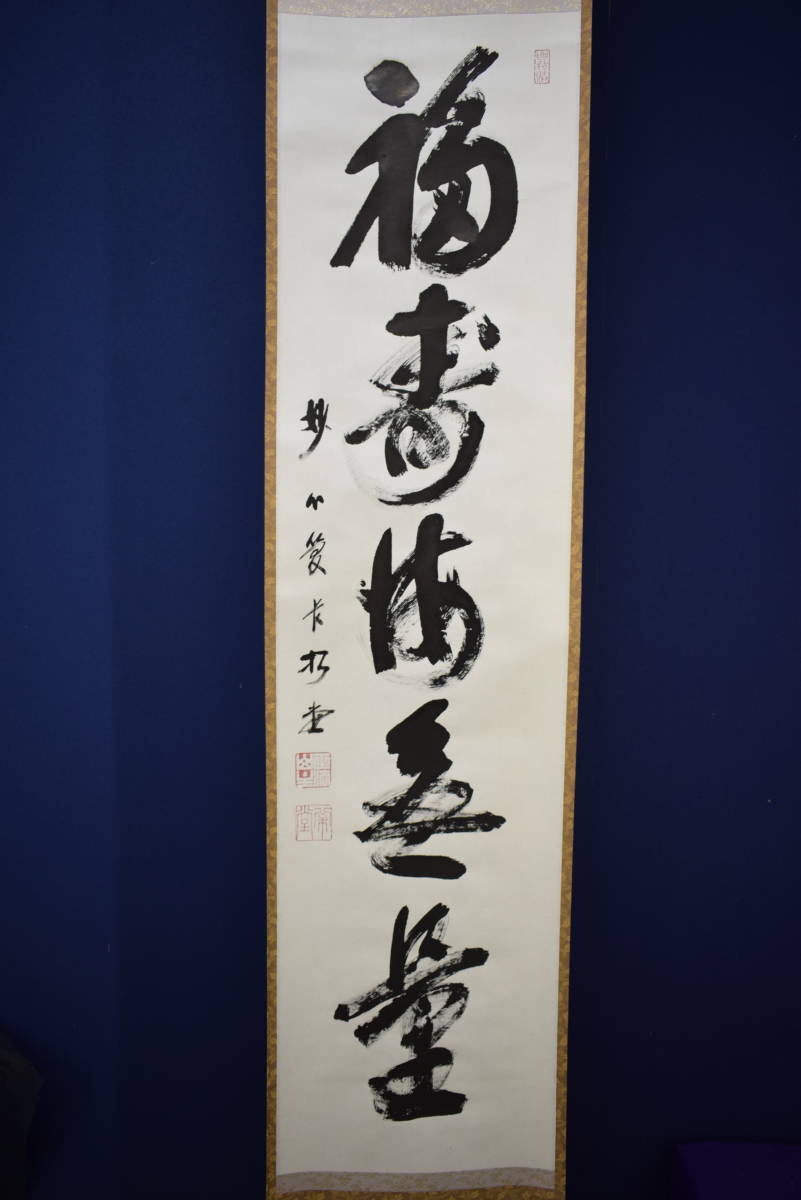 福寿海無量
妙心管長 松堂